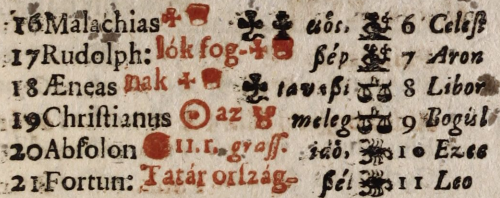 16 Malachias idős. 6 Celest
17 Rudolph: lók fog- ßép 7 Aron
18 Æneas nak tavaßi 8 Libor
19 Christianus az meleg 9 Bogusl
20 Absolon 11.r. grass. idő. 10 Ezec
21 Fortun: Tatár ország- ßél 11 Leo